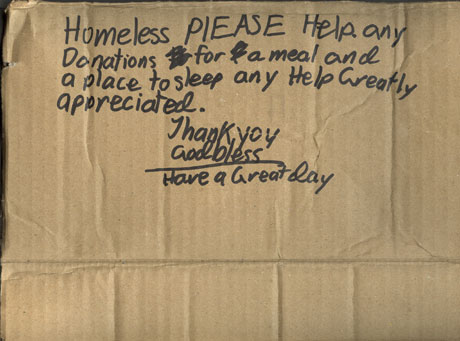 Homeless PLEASE Help any
Donations for a meal and
a place to sleep any Help Greatly
appreciated.
Thank you
God bless
Have a Great day